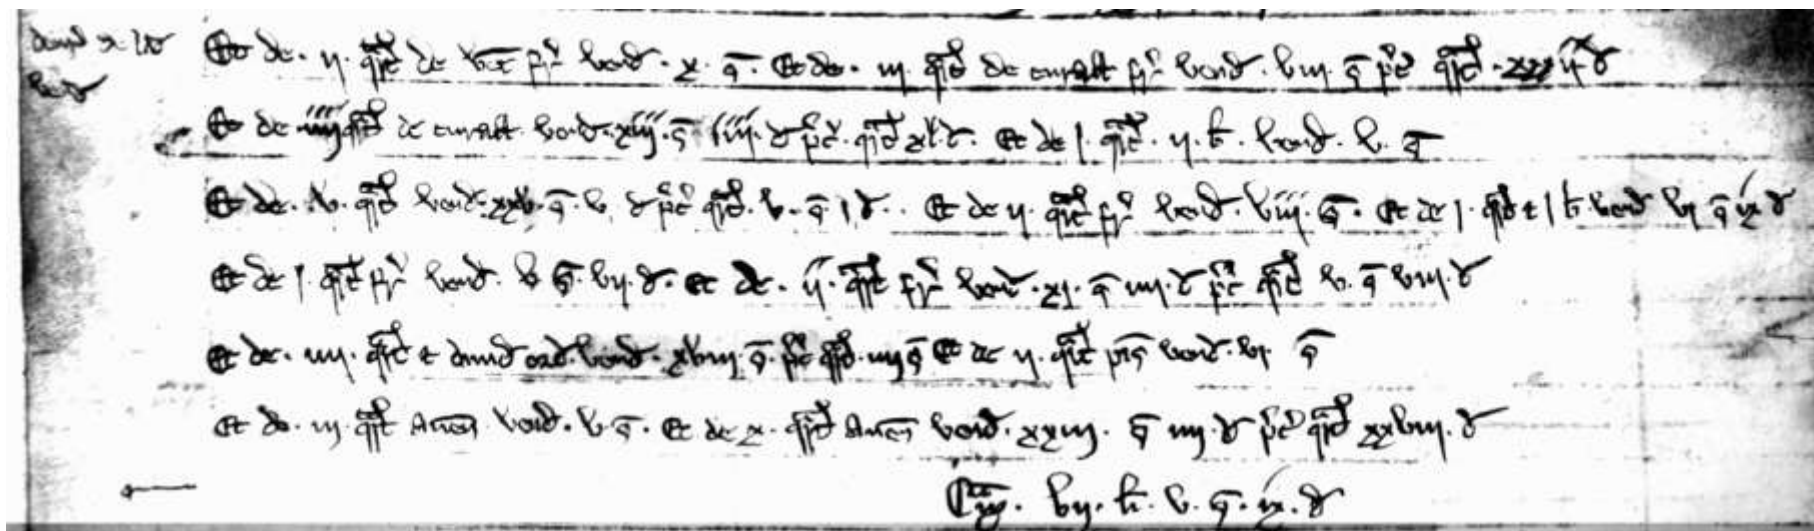 Et de . ij . qrt de vet fr̄ vend . x . s . Et de . iij . qrt de curall fr̄ vend . viij . s p̄c qrt . xxxij d
Et de iiij qrt de curall . vend . xiij . s iiij . d p̄c . qrt xl . d . Et de j . qrt . ij . b . vend . v . s
Et de . v . qrt vend . xxv . s . v . d p̄c qrt . v . s . j d . Et de ij . qrt fr̄ vend . viij . s . Et de j . qrt & j b . vend vj s ix d
Et de j . qrt fr̄ vend . v s . vij . d . Et de . ij . qrt fr̄ vend . xj . s iiij . d p̄c qrt v . s viij . d
Et de . iiij . qrt & dimid ord . vend . xviij . s . p̄c qrt . iiij s Et de ij . qrt pis vend . vj . s
Et de . iij . qrt Auen vend . v . s . Et de x . qrt Auen vend . xxiij . s iiij . d p̄c qrt xxviij . d
Sm̄ . vij . li . v . s . ix . d